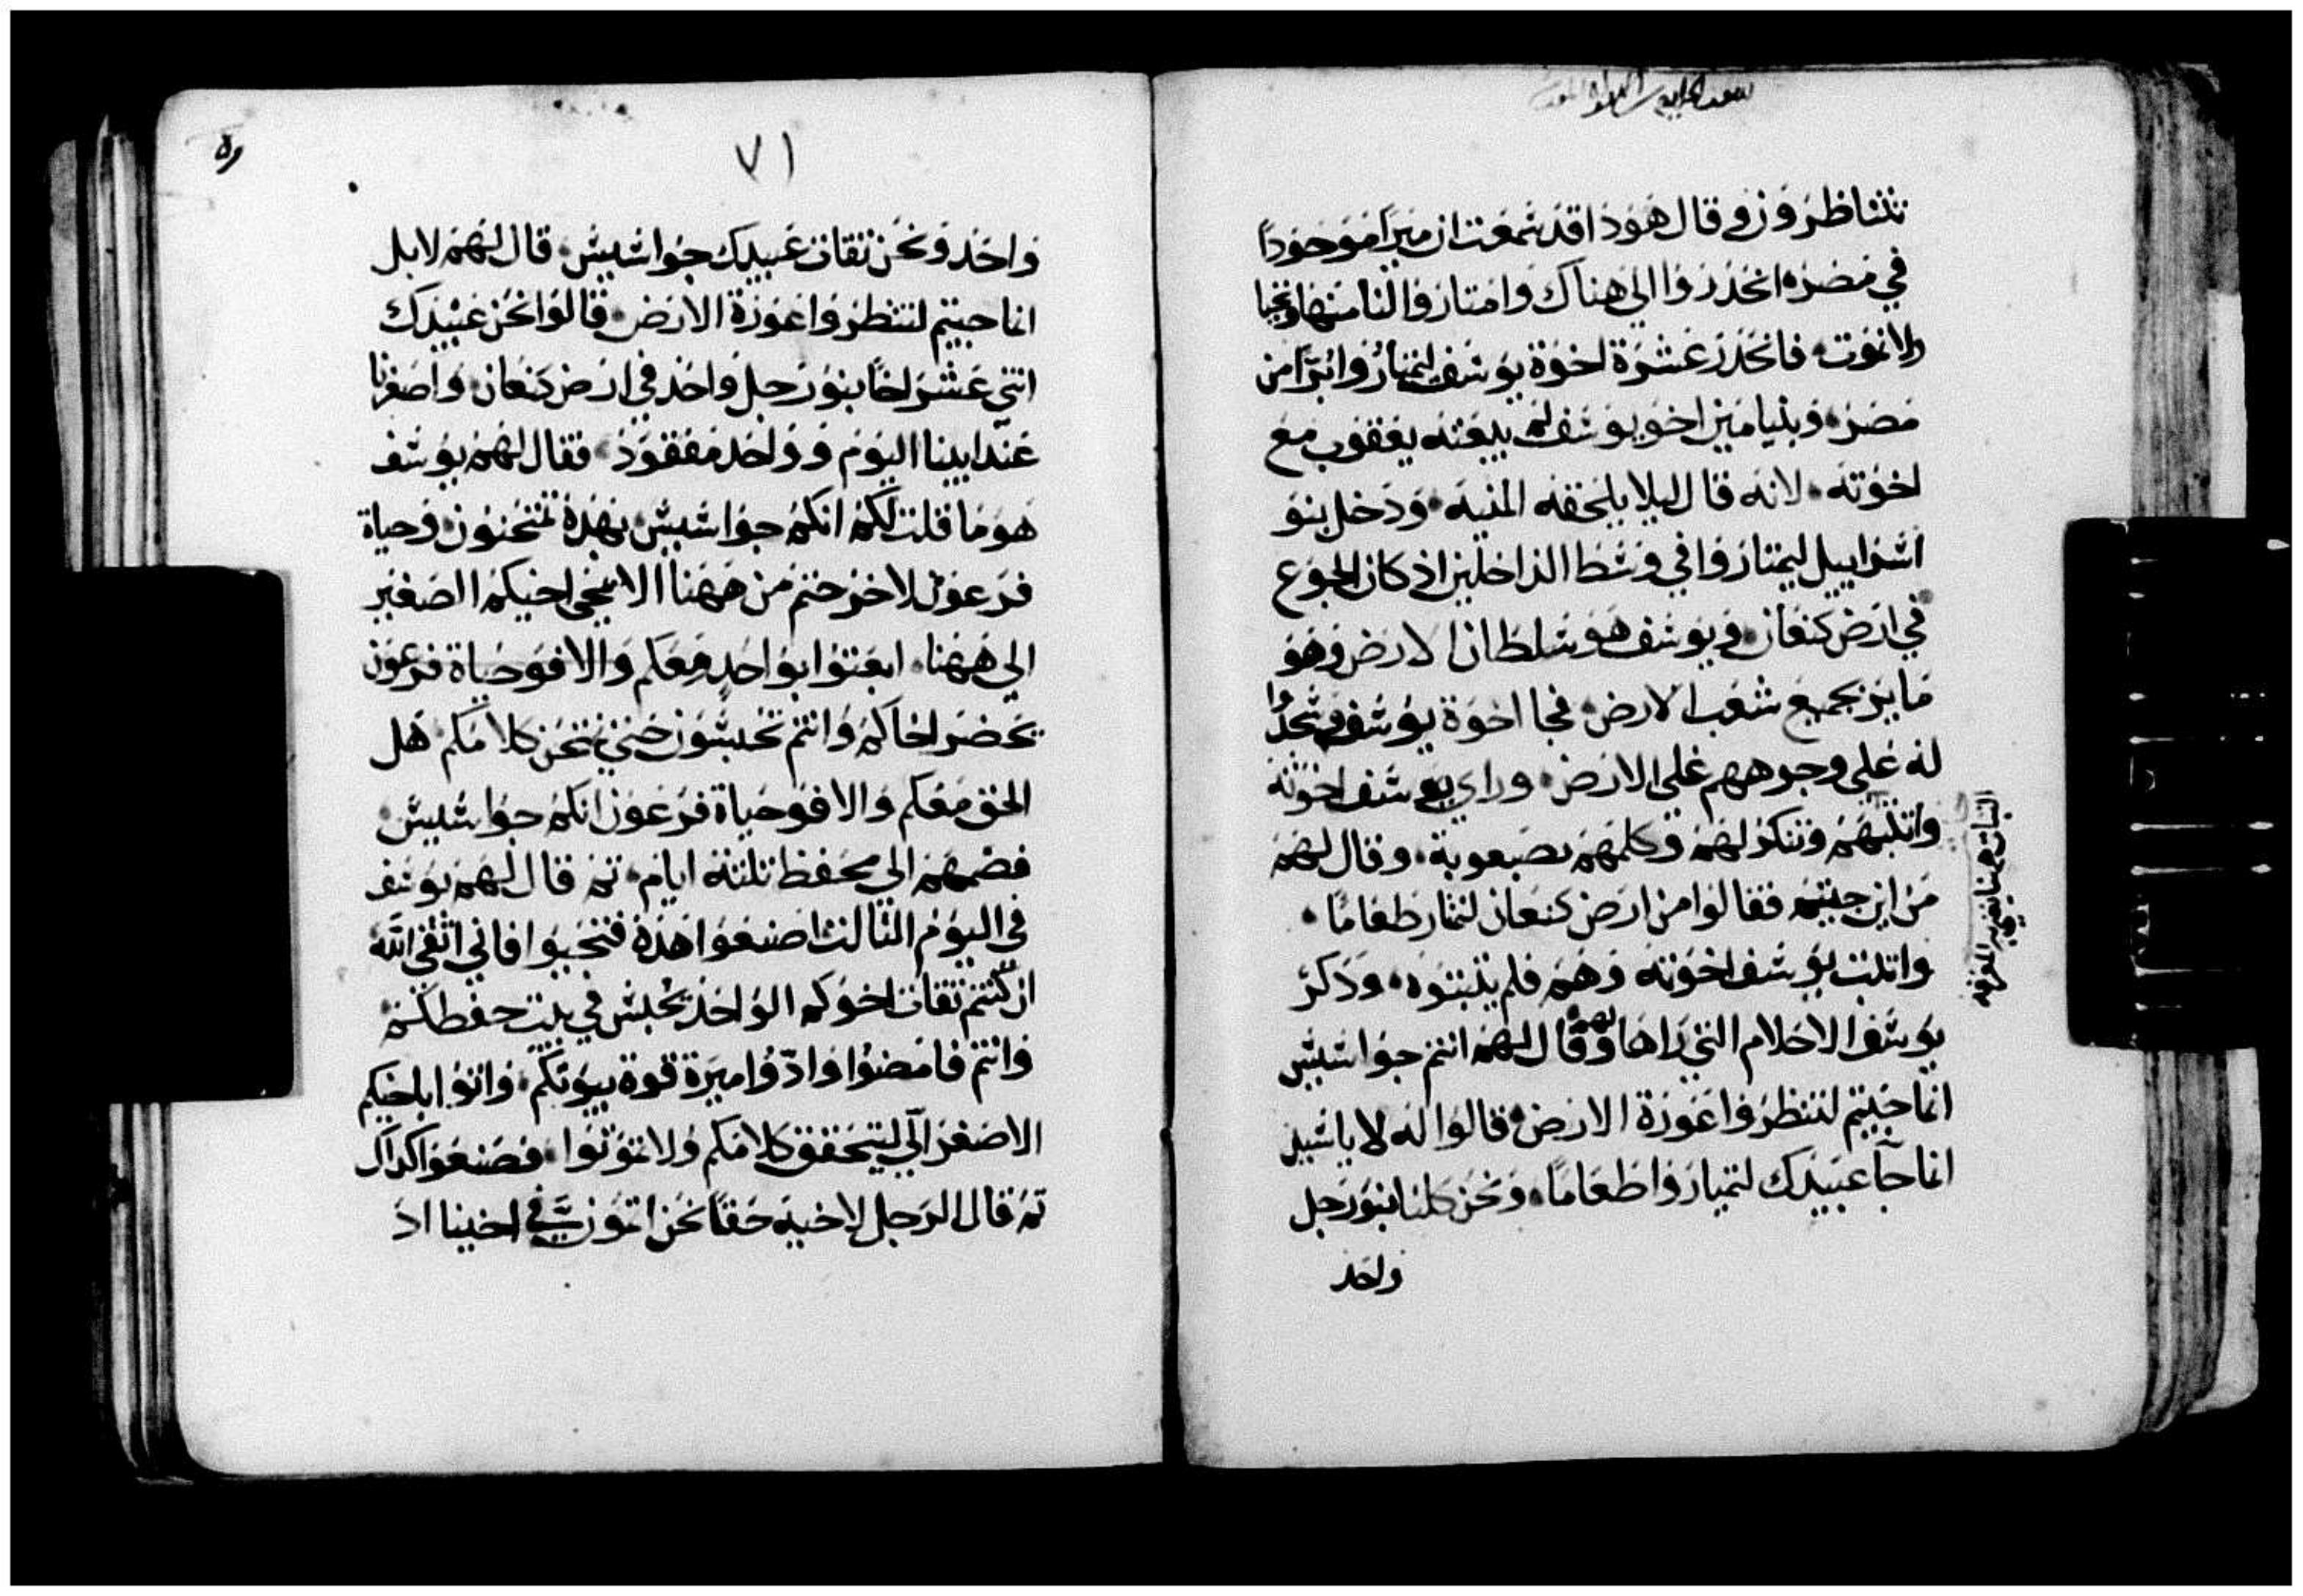 تتناظرون وقال هوذا قد سمعت ان ميرا موجودا
في مصر انحدروا الي هناك وامتاروا لنا منها ونحيا
ولا نموت فانحدر عشرة اخوة يوسف ليمتاروا برا من
مصر وبنيامين اخو يوسف لم يبعثه يعقوب مع
اخوته لانه قال ليلا يلحقه المنيه ودخل بنو
اسراييل ليمتاروا في وسط الداخلين اذ كان الجوع
في ارض كنعان ويوسف هو سلطان الارض وهو
ماير جميع شعب الارض فجا اخوة يوسف وسجدوا
له علي وجوههم علي الارض وراي يوسف اخوته
واتلبهم وتنكر لهم وكلمهم بصعوبة وقال لهم
من اين جيتم فقالوا من ارض كنعان لنمتار طعاما
واتلبت يوسف اخوته وهم فلم يتبتوه ودكر
يوسف الاحلام التي راها بهم وقال لهم انتم جواسيس
انما جيتم لتنظروا عورة الارض قالوا له لا ياسيد
انما جآ عبيدك لتميارواطعاما ونحن كلنا بنو رجل
واحد
٧١
واحد ونحن تقات عبيدك جواسيس قال لهم لا بل
انما جيتم لتنظروا عورة الارض قالوا نحن عبيدك
اتني عشر اخا بنو رجل واحد في ارض كنعان واصغرنا
عند ابينا اليوم وواحد مفقود فقال لهم يوسف
هو ما قلت لكم انكم جواسيس بهده تمتحنون وحياة
فرعون لا خرجتم من ههنا الا بمجي اخيكم الصغير
الي ههنا ابعتوا بواحد معكم والا فو حياة فرعون
يحضر اخاكم وانتم تحبسون حتي نمتحن كلامكم هل
الحق معكم والا فو حياة فرعون انكم جواسيس
فضمهم الي محفظ تلتة ايام تم قال لهم يوسف
في اليوم التالت اصنعوا هده فتحيوا فاني اتقي الله
ان كنتم تقات اخوكم الواحد يحبس في بيت حفظكم
وانتم فامضوا وادوا ميرة قوة بيوتكم واتوا باخيكم
الاصغر الي ليتحقق كلامكم ولا تموتوا فصنعوا كداك
تم قال الرجل لاخيه حقا نحن اتمون في اخينا اد